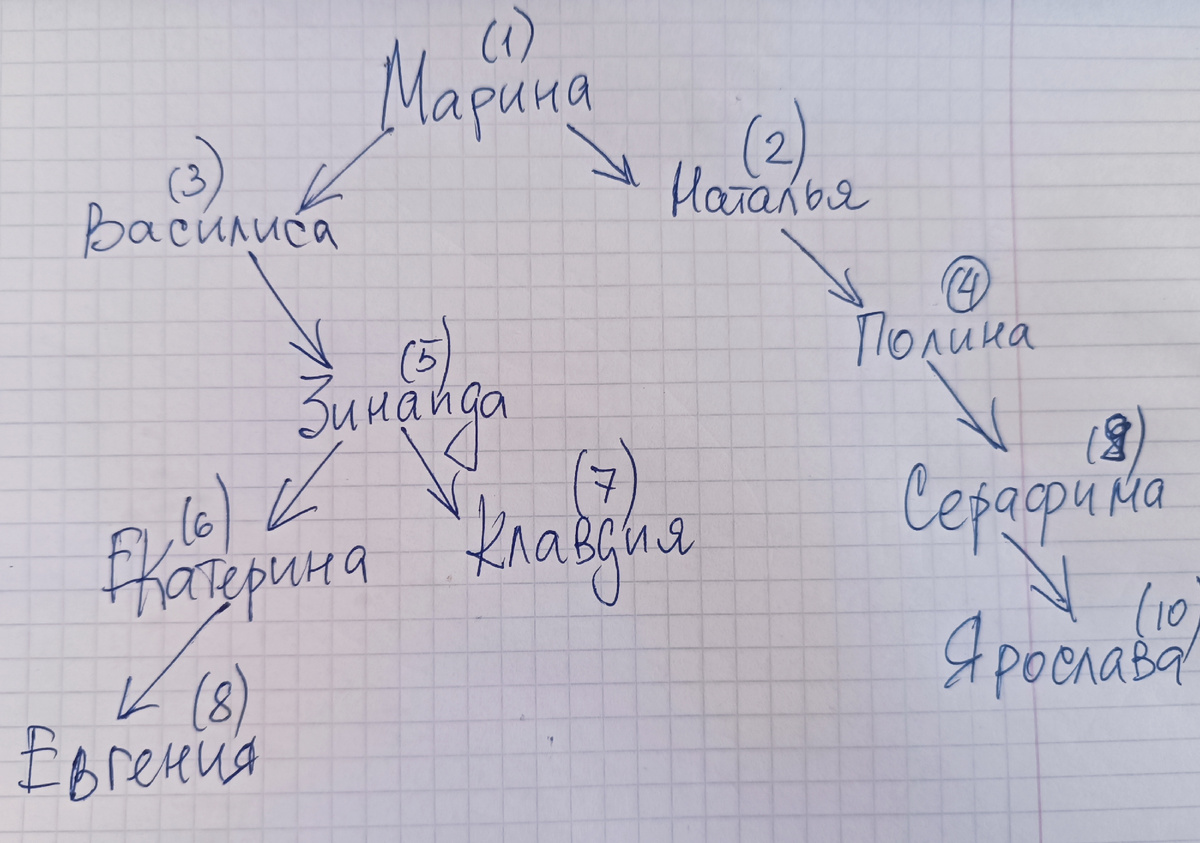 (1)
Марина
(2)
Наталья
(3)
Василиса
(4)
Полина
(5)
Зинаида
(9)
Серафима
(6)
Екатерина
(7)
Клавдия
(10)
Ярослава
(8)
Евгения